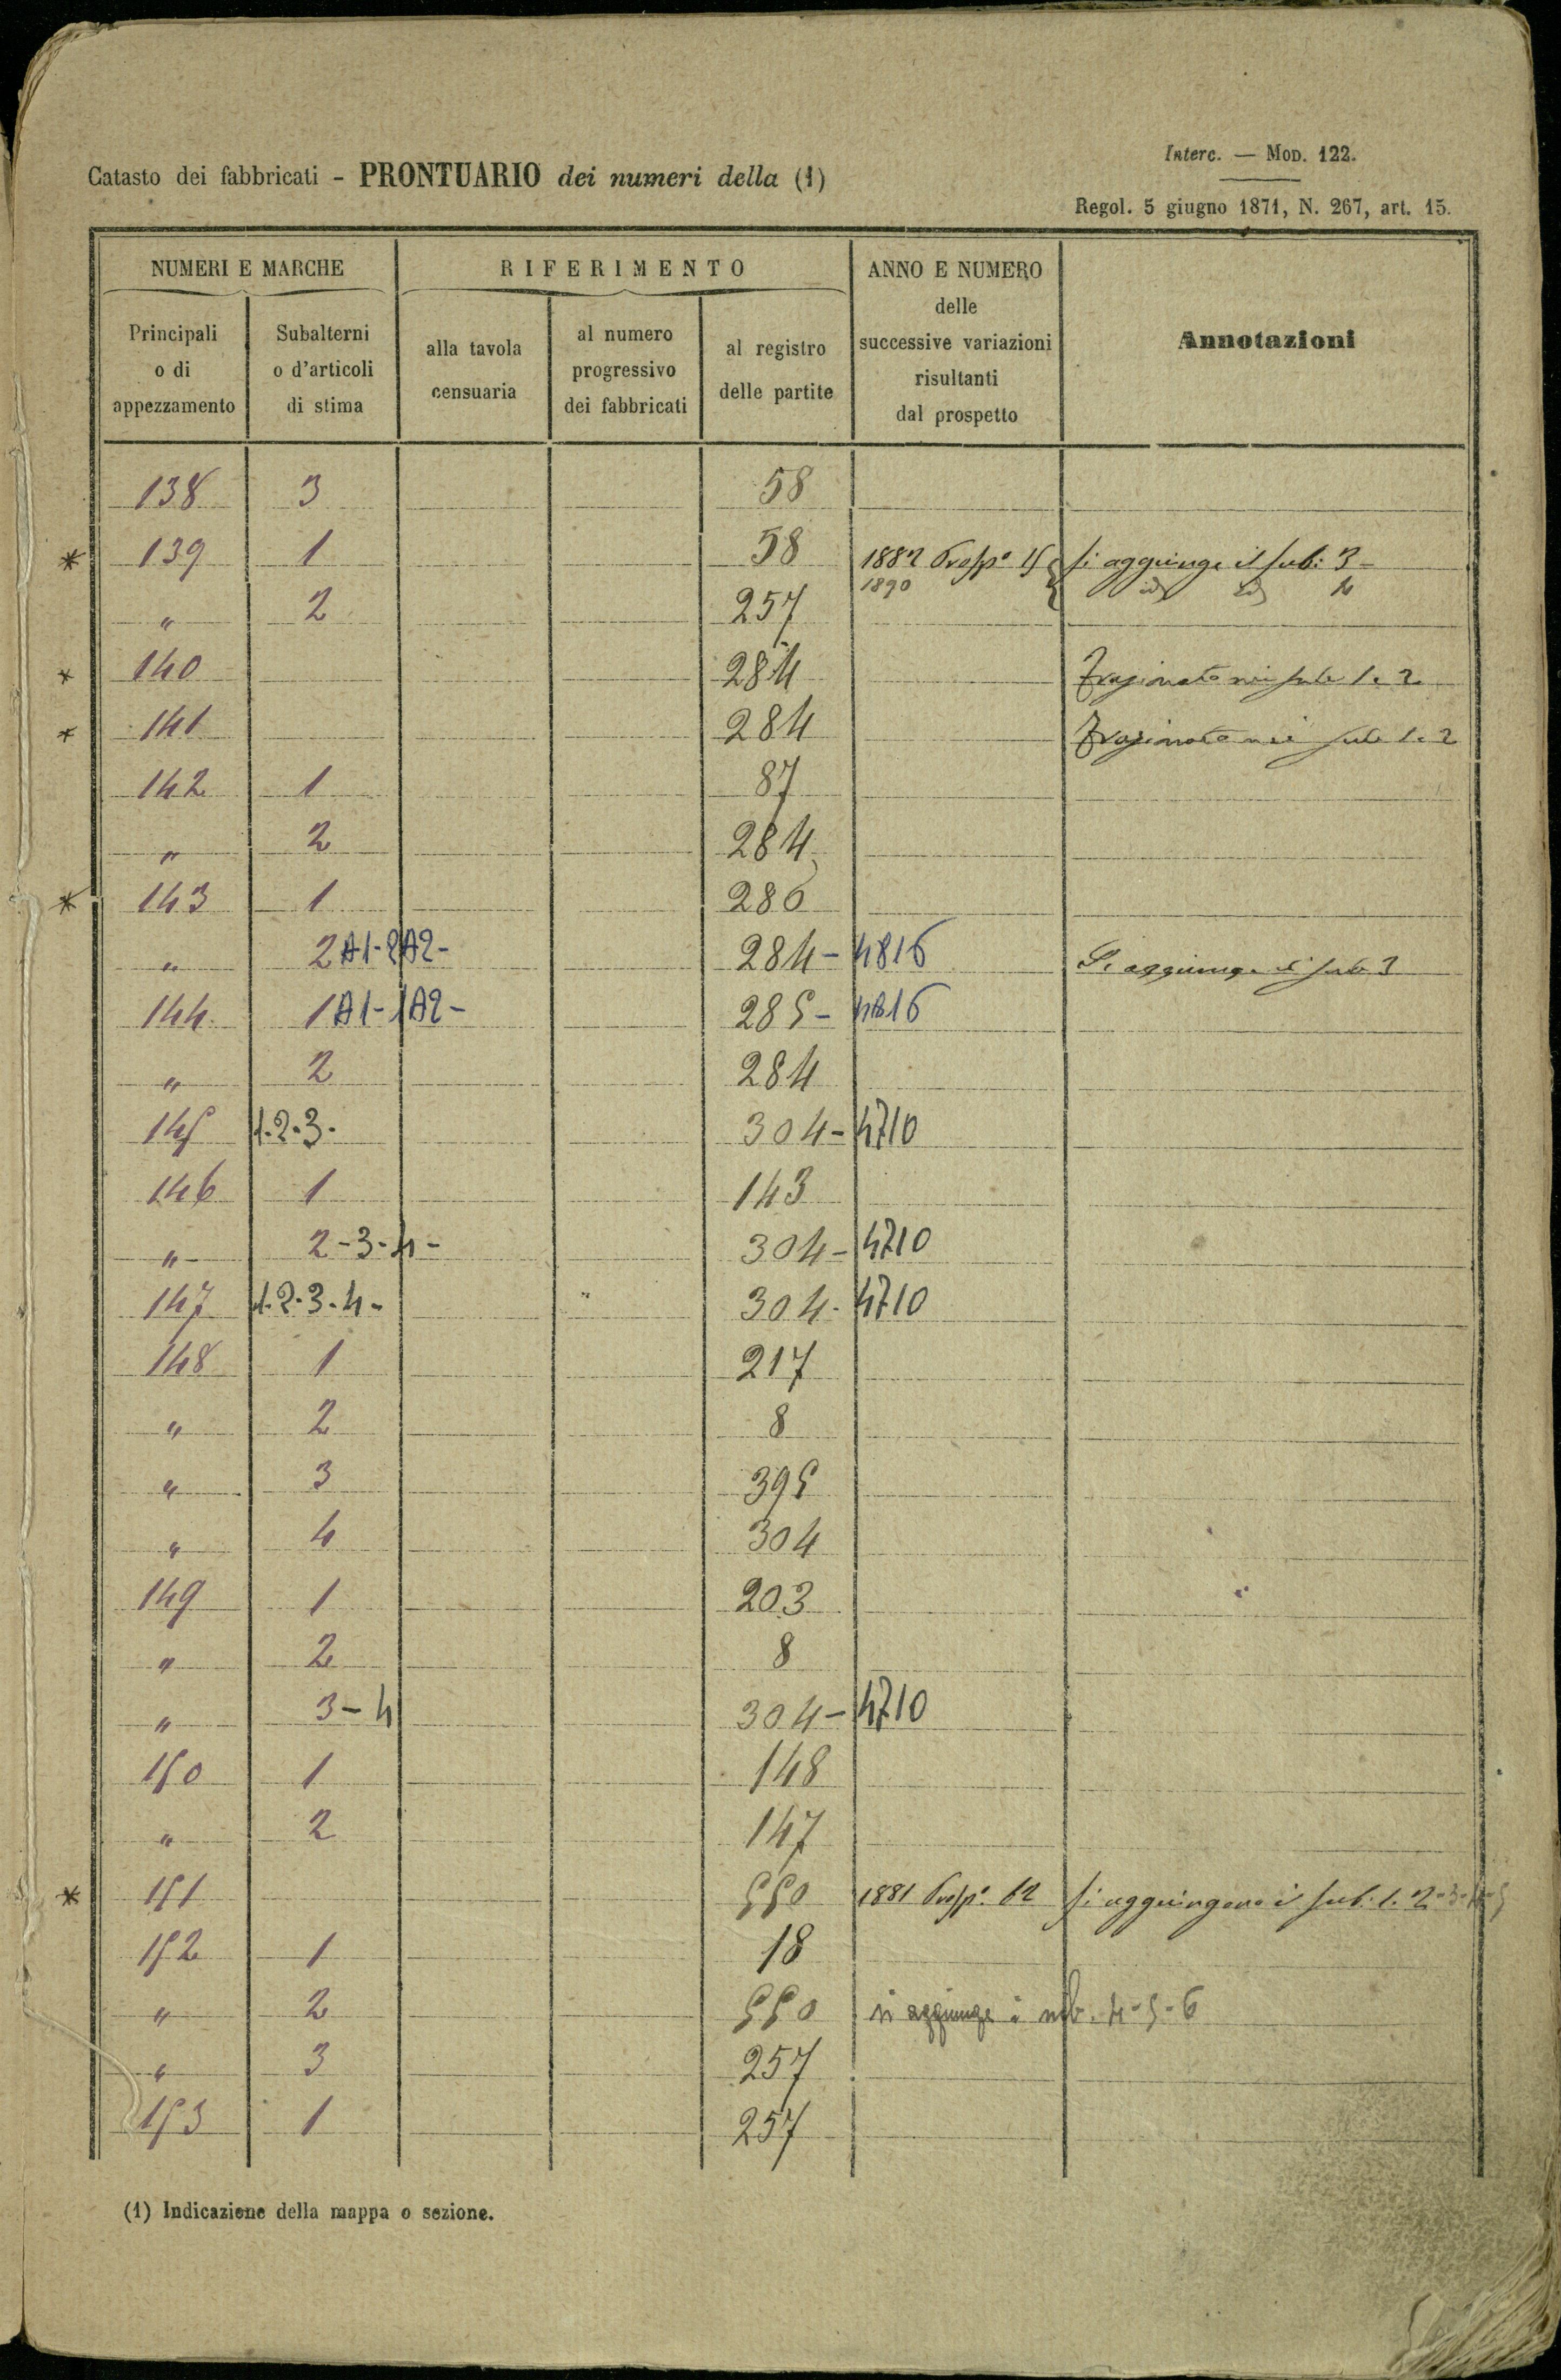 Interc. — MOD. 122.
Catasto dei fabbricati - PRONTUARIO dei numeri della (1)
Regol. 5 giugno 1871, N. 267, art. 15.
NUMERI E MARCHE
RIFERIMENTO
ANNO E NUMERO
delle
successive variazioni
risultanti
dal prospetto
Annotazioni
Principali
o di
appezzamento
Subalterni
o d'articoli
di stima
alla tavola
censuaria
al numero
progressivo
dei fabbricati
al registro
delle partite
138 3 58
* 139 1 58 1882 Prosp.º 15 si aggiunge il sub: 3 -
1890 id id
" 2 257
* 140 284 Frazionato nei sub 1. 2
* 141 284 Frazionato nei sub 1. 2
142 1 87
" 2 284
* 143 1 286
" 2 A1-2A2- 284 - 4816 Si aggiunge il sub 3
144 1 A1-1A2- 285 - 4816
" 2 284
145 1.2.3. 304 - 4710
146 1 143
" 2-3-4- 304 - 4710
147 1.2.3.4- 304 - 4710
148 1 217
" 2 8
" 3 395
" 4 304
149 1 203
" 2 8
" 3-4 304 - 4710
150 1 148
" 2 147
* 151 550 1881 Prosp.º 62 si aggiungono i sub. 1. 2-3-4-5
152 1 18
" 2 550 si aggiunge i sub. 4-5-6
" 3 257
153 1 257
(1) Indicazione della mappa o sezione.